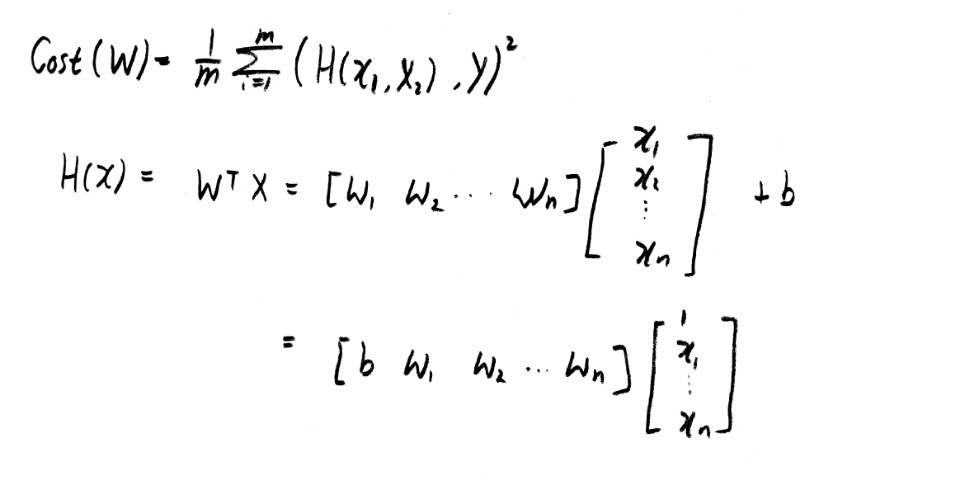 Cost(W) = \frac{1}{m} \sum_{i=1}^{m} (H(x_1, x_2), y)^2
H(x) = W^T X = [W_1 W_2 ⋯ W_n] \begin{bmatrix} x_1 \\ x_2 \\ \vdots \\ x_n \end{bmatrix} + b
= [b W_1 W_2 ⋯ W_n] \begin{bmatrix} 1 \\ x_1 \\ \vdots \\ x_n \end{bmatrix}